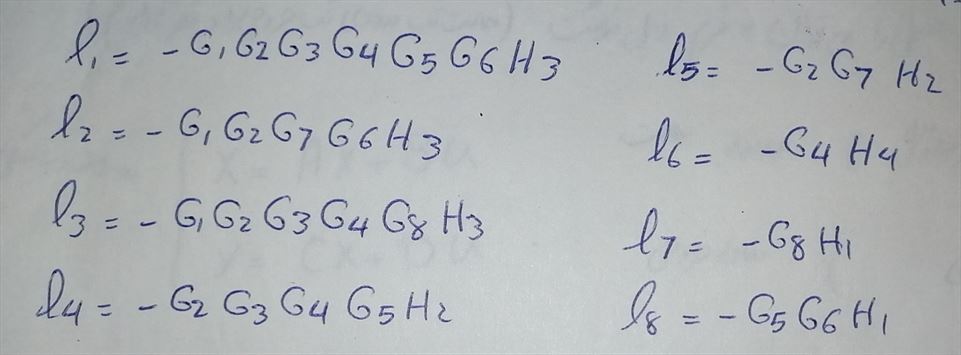 l1 = - G1 G2 G3 G4 G5 G6 H3
l2 = - G1 G2 G7 G6 H3
l3 = - G1 G2 G3 G4 G8 H3
l4 = - G2 G3 G4 G5 H2
l5 = - G2 G7 H2
l6 = - G4 H4
l7 = - G8 H1
l8 = - G5 G6 H1